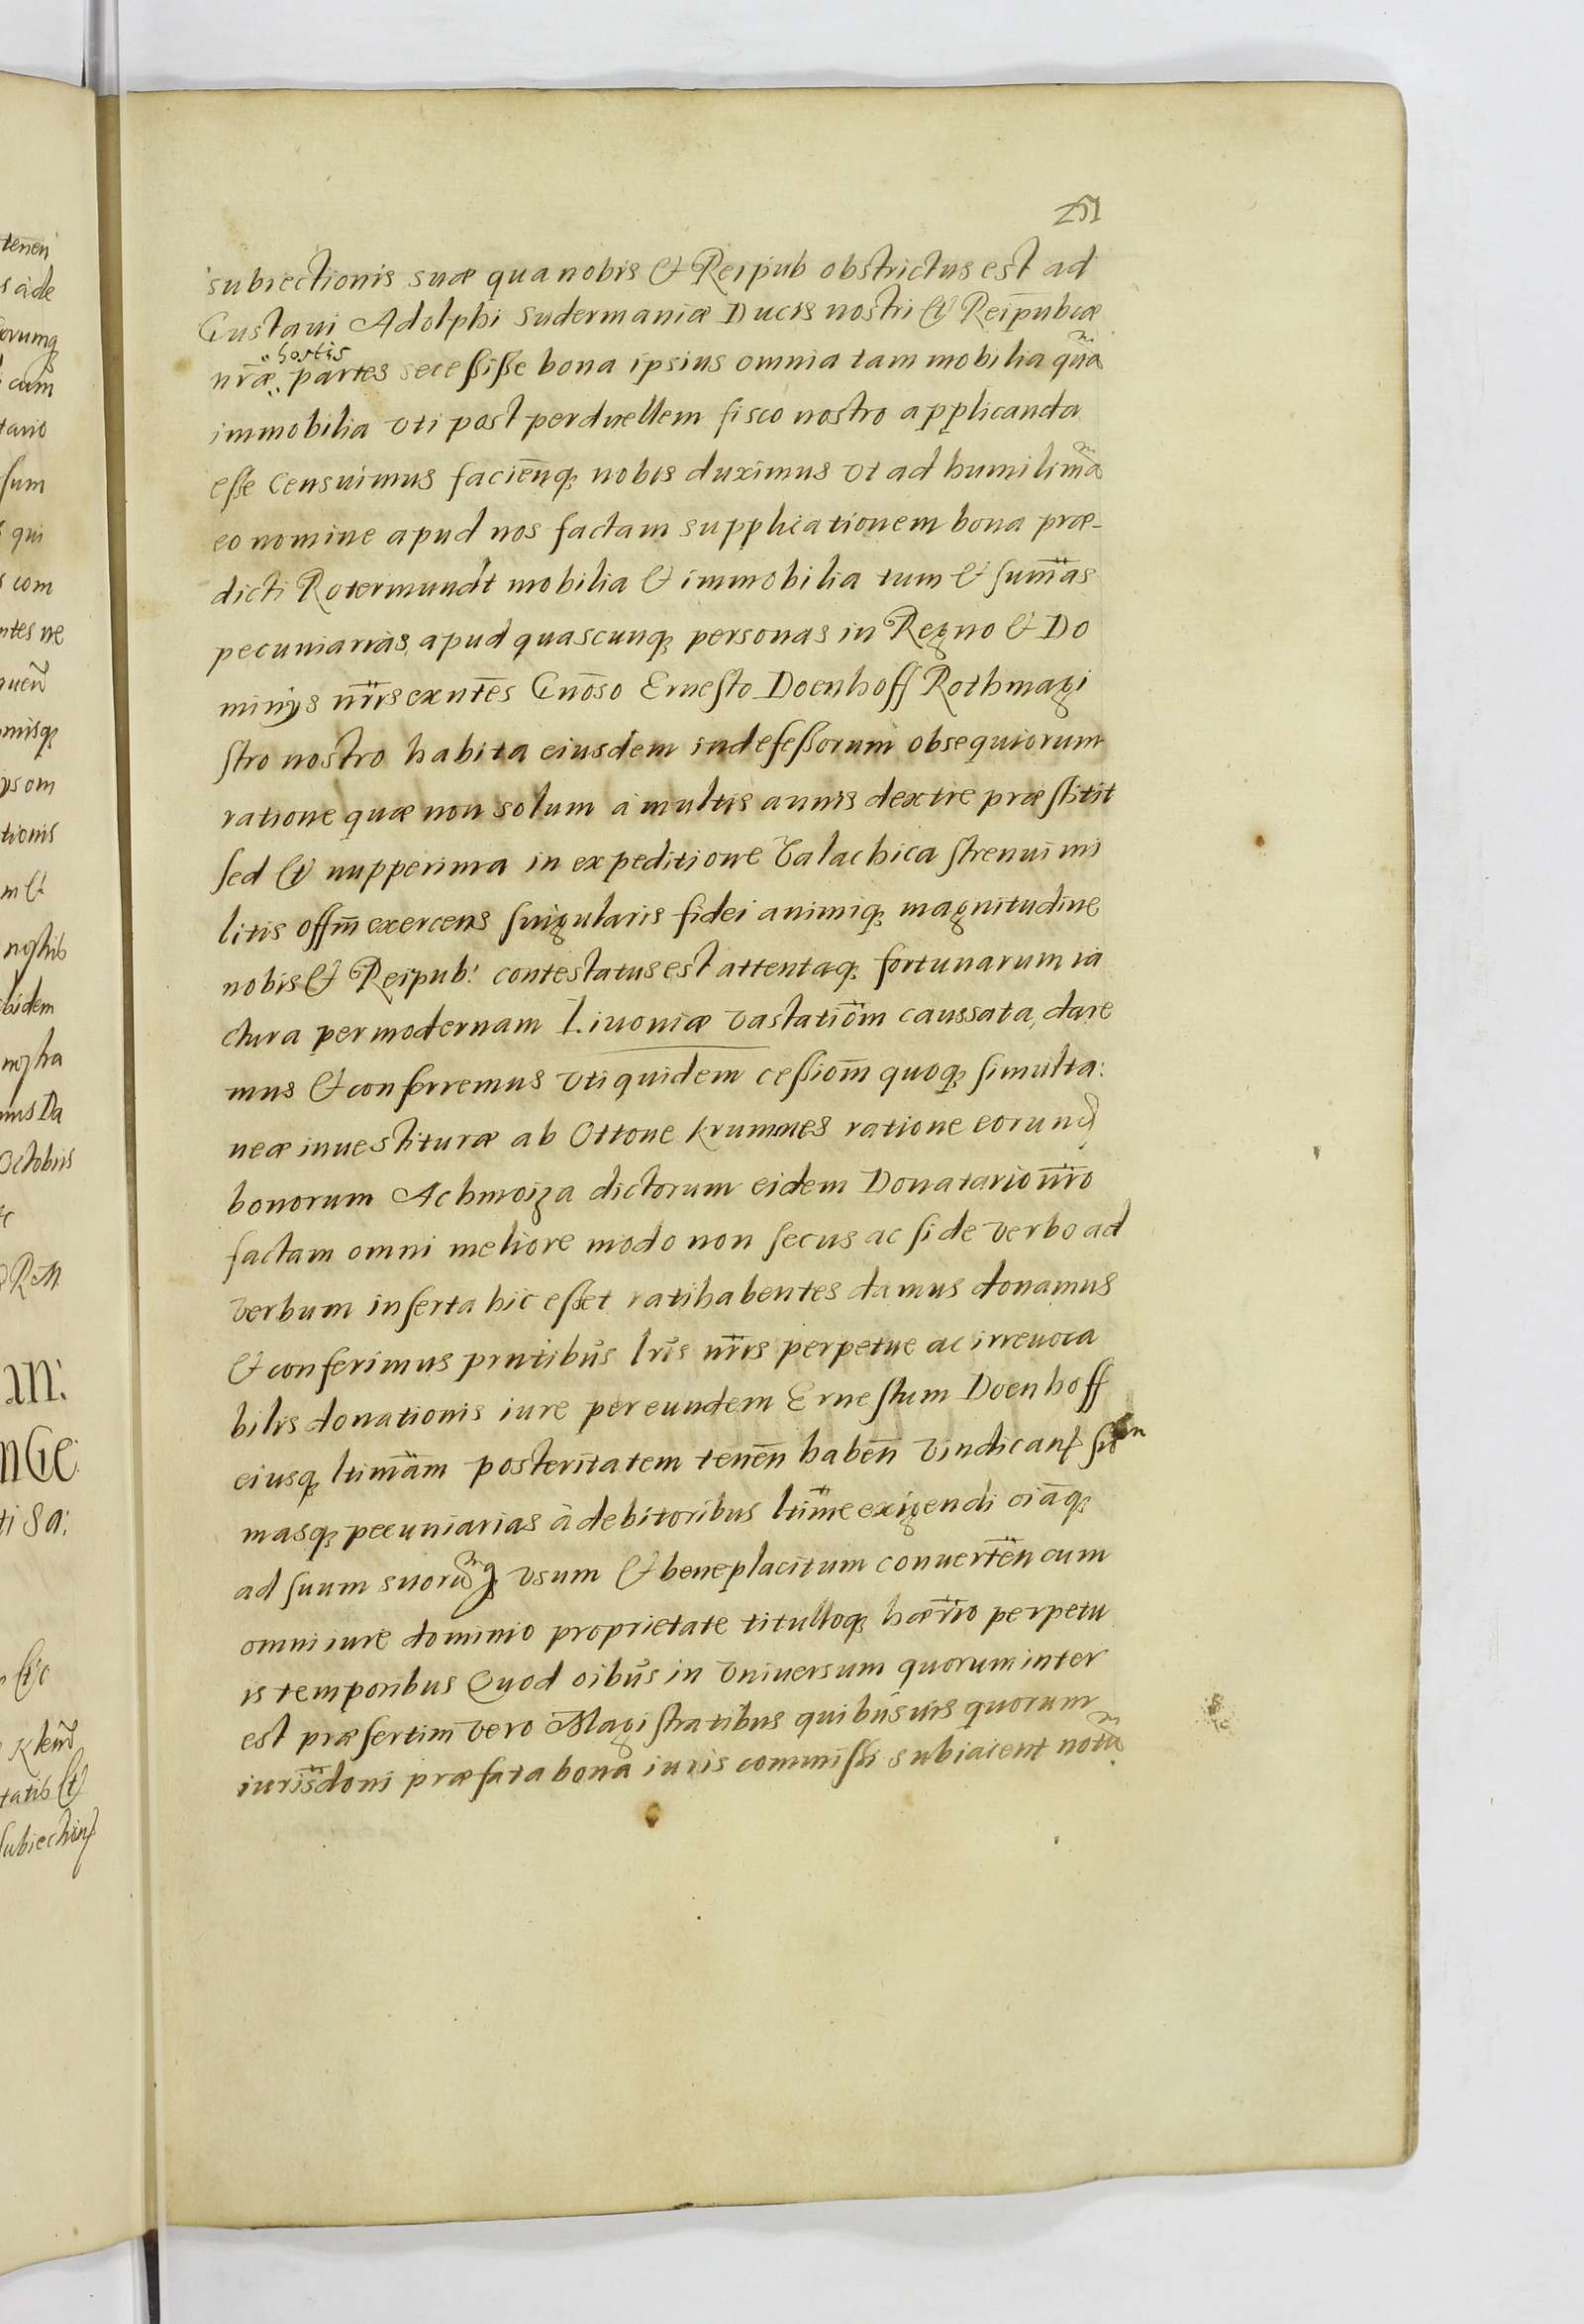 251
subiectionis suæ qua nobis & Reipub obstrictus est ad
Gustavi Adolphi Sudermaniæ Ducis nostri & Reipubcæ
hostis
nr̃æ partes secessisse bona ipsius omnia tam mobilia quã
immobilia vti post perduellem fisco nostro applicanda
esse censuimus facienq; nobis duximus vt ad humilimã
eo nomine apud nos factam supplicationem bona præ-
dicti Rotermundt mobilia & immobilia tum & sum̃as
pecuniarias, apud quascunq; personas in Regno & Do
minijs nr̃is exñtes Gñoso Ernesto Doenhoff Rothmagi
stro nostro habita eiusdem indefessorum obsequiorum
ratione quæ non solum à multis annis dextre præstitit
sed & nupperima in expeditione Valachica strenui mi
litis offm̃ exercens singularis fidei animiq; magnitudine
nobis & Reipub: contestatus est attentaq; fortunarum ia
ctura per modernam Livoniæ vastatiom̃ caussata, dare
mus & conferremus vti quidem cessiom̃ quoq; simulta:
neæ inuestituræ ab Ottone Krummes ratione eorund
bonorum Achmoiza dictorum eidem Donatario nr̃o
factam omni meliore modo non secus ac si de verbo ad
verbum inserta hic esset ratihabentes damus donamus
& conferimus prntibus lr̃is nr̃is perpetue ac irreuoca
bilis donationis iure per eundem Ernestum Doenhoff
eiusq; ltimam̃ posteritatem teneñ habeñ vindicanđ sum
masq; pecuniarias à debitoribus ltim̃e exigendi oiãq;
ad suum suorũq; vsum & beneplacitum conuerteñ cum
omni iure dominio proprietate titulloq; hær̃io perpetu
is temporibus Quod oibus in vniversum quorum inter
est præsertim vero Magistratibus quibusuis quorum
iurisdõni præfata bona iuris commissi subiacent notũ